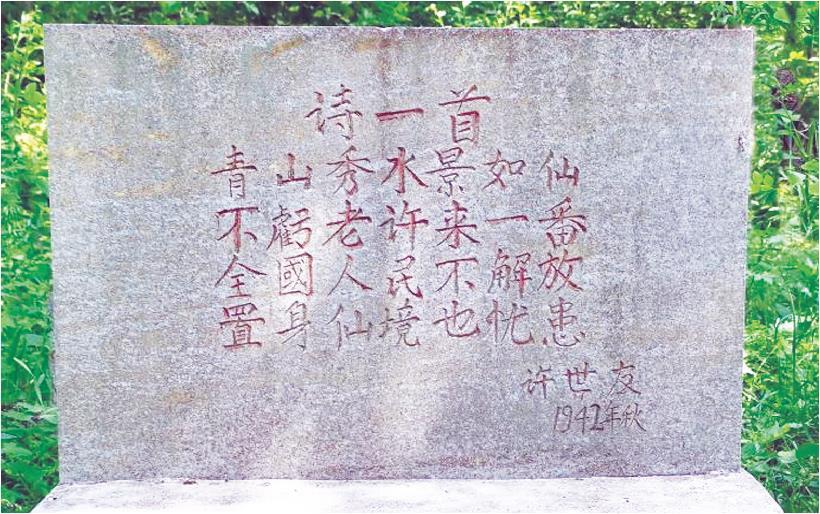 诗一首
青山秀水景如仙
不虧老许来一番
全國人民不解放
置身仙境也忧患
许世友
1942年秋